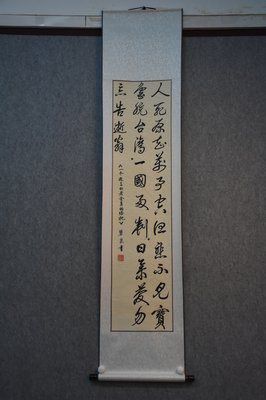 人死原知萬事空但悲不見寶
島統台灣一國兩制日家祭勿
忘告逝翁